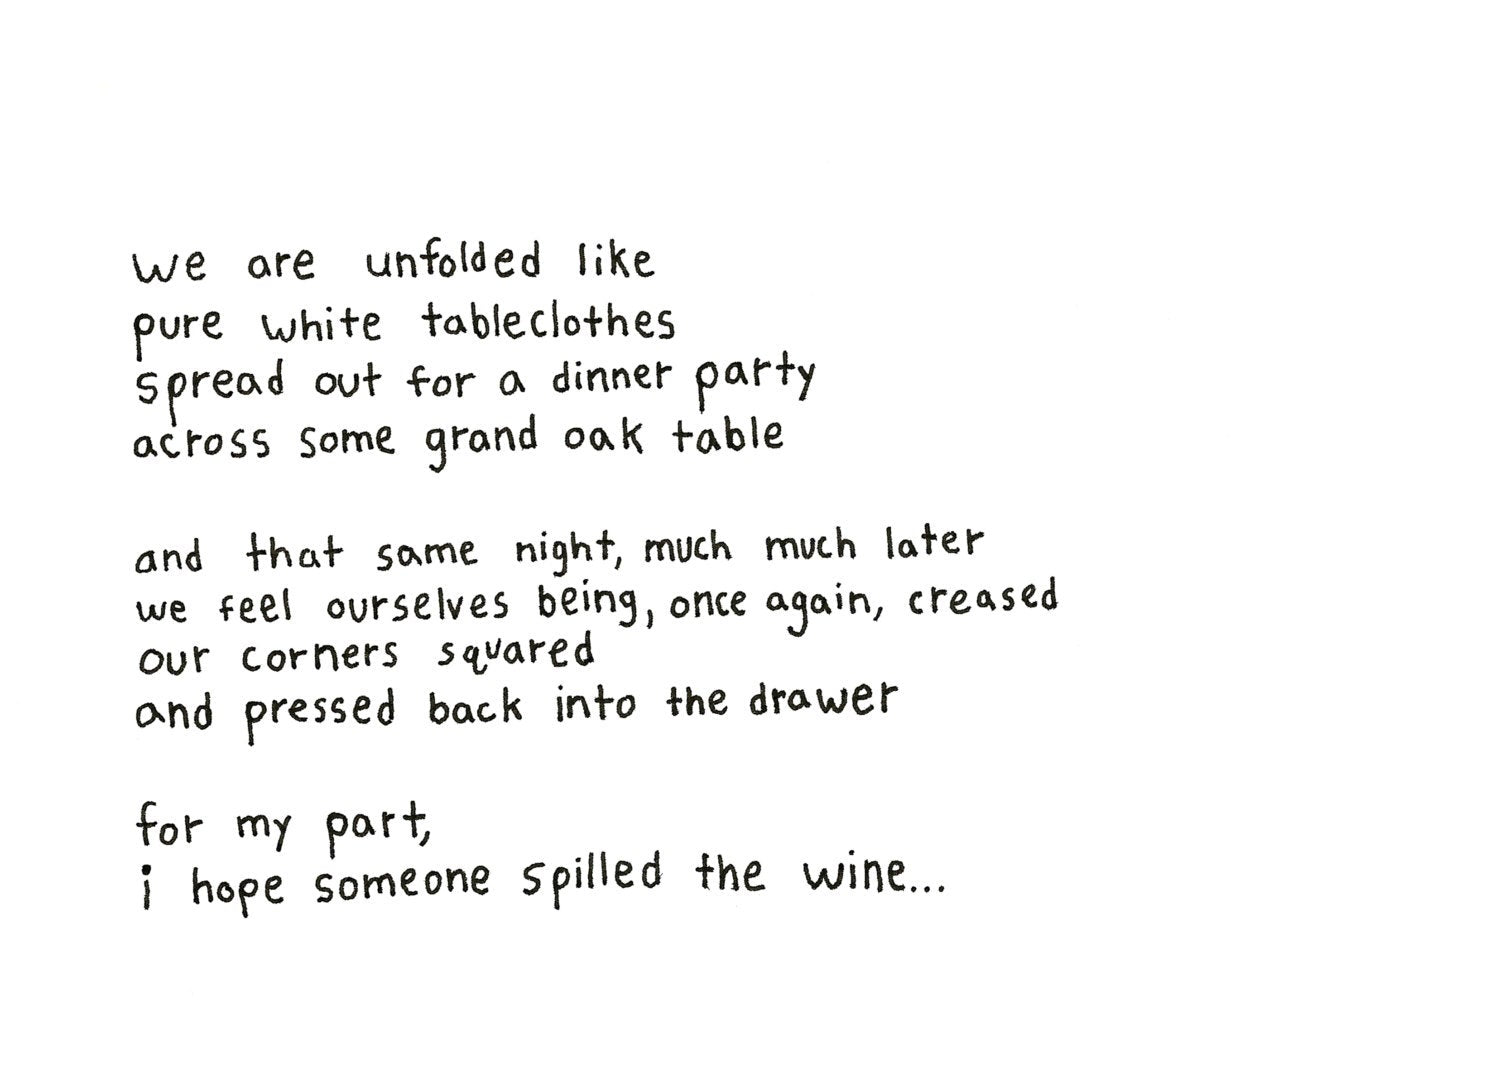 we are unfolded like
pure white tableclothes
spread out for a dinner party
across some grand oak table
and that same night, much much later
we feel ourselves being, once again, creased
our corners squared
and pressed back into the drawer
for my part,
i hope someone spilled the wine...